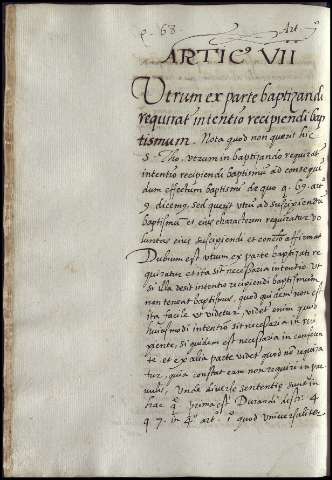 q. 68. Art. 7
ARTIC° VII
Vtrum ex parte baptizandi
requirat intentio recipiendi bap
tismum. Nota quod non querit hic
S. Tho. utrum in baptizando requirat
intentio recipiendi baptismũ ad consequẽ
dum effectum baptismi de quo q. 69. artº
9. dicemꝰ, sed querit utrũ ad suscipiendũ
baptismũ et eius characterem requiratur vo
luntas eius suscipiendi et affirmat
Dubium est utrum ex parte baptizati re
quiratur et ita sit necessaria intentio ut
si illa desit intentio recipiendi baptismum
non teneat baptismus, quod quidem non est
ita facile ut videtur, videt enim quod
huiusmodi intentio sit necessaria in
siquidem est necessaria in
te et ex alia parte videt quod non requira
tur, quia constat eam non requiri in par
vulis, Unde diverse sententie sunt in
hac q. prima est Durandi dist. 4
q. 7. in 4° art. 1° quod universaliter